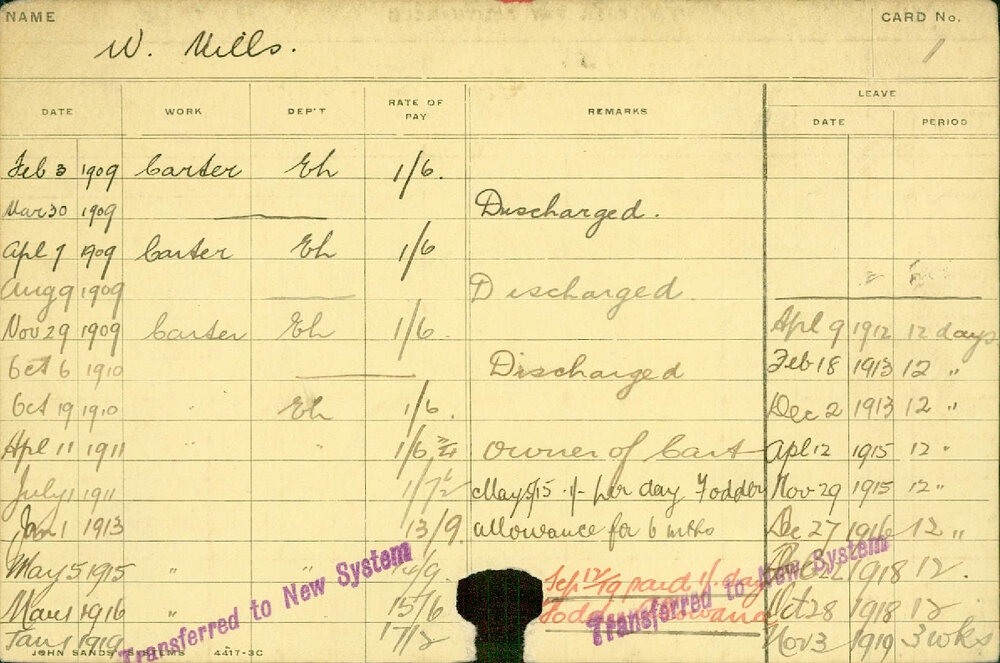 NAME W. Mills. CARD No. 1
LEAVE
DATE WORK DEP'T RATE OF PAY REMARKS DATE PERIOD
Feb 3 1909 Carter Eh 1/6.
Mar 30 1909 Discharged.
Apl 7 1909 Carter Eh 1/6
Aug 9 1909 Discharged.
Nov 29 1909 Carter Eh 1/6. Apl 9 1912 12 days
Oct 6 1910 Discharged Feb 18 1913 12 "
Oct 19 1910 " Eh 1/6. Dec 2 1913 12 "
Apl 11 1911 " " 1/6 Owner of Cart Apl 12 1915 12 "
July 1 1911 1/7½ May 5/15 1/- per day Fodder Nov 29 1915 12 "
Jan 1 1913 13/9. allowance for 6 mths Dec 27 1916 12 "
May 5 1915 " " 14/9. Sep 12/19 paid 1/. day 22 1918 12.
Mar 1 1916 " 15/6 Fodder allowance Oct 28 1918 12 "
Jan 1 1919 17/2 Nov 3 1919 3 wks
Transferred to New System
Transferred to New System
JOHN SANDS SYSTEMS 4417-3C